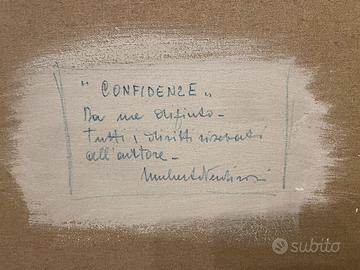 "CONFIDENZE"
Da me dipinto -
Tutti i diritti riservati
all'autore -
Umberto
subito